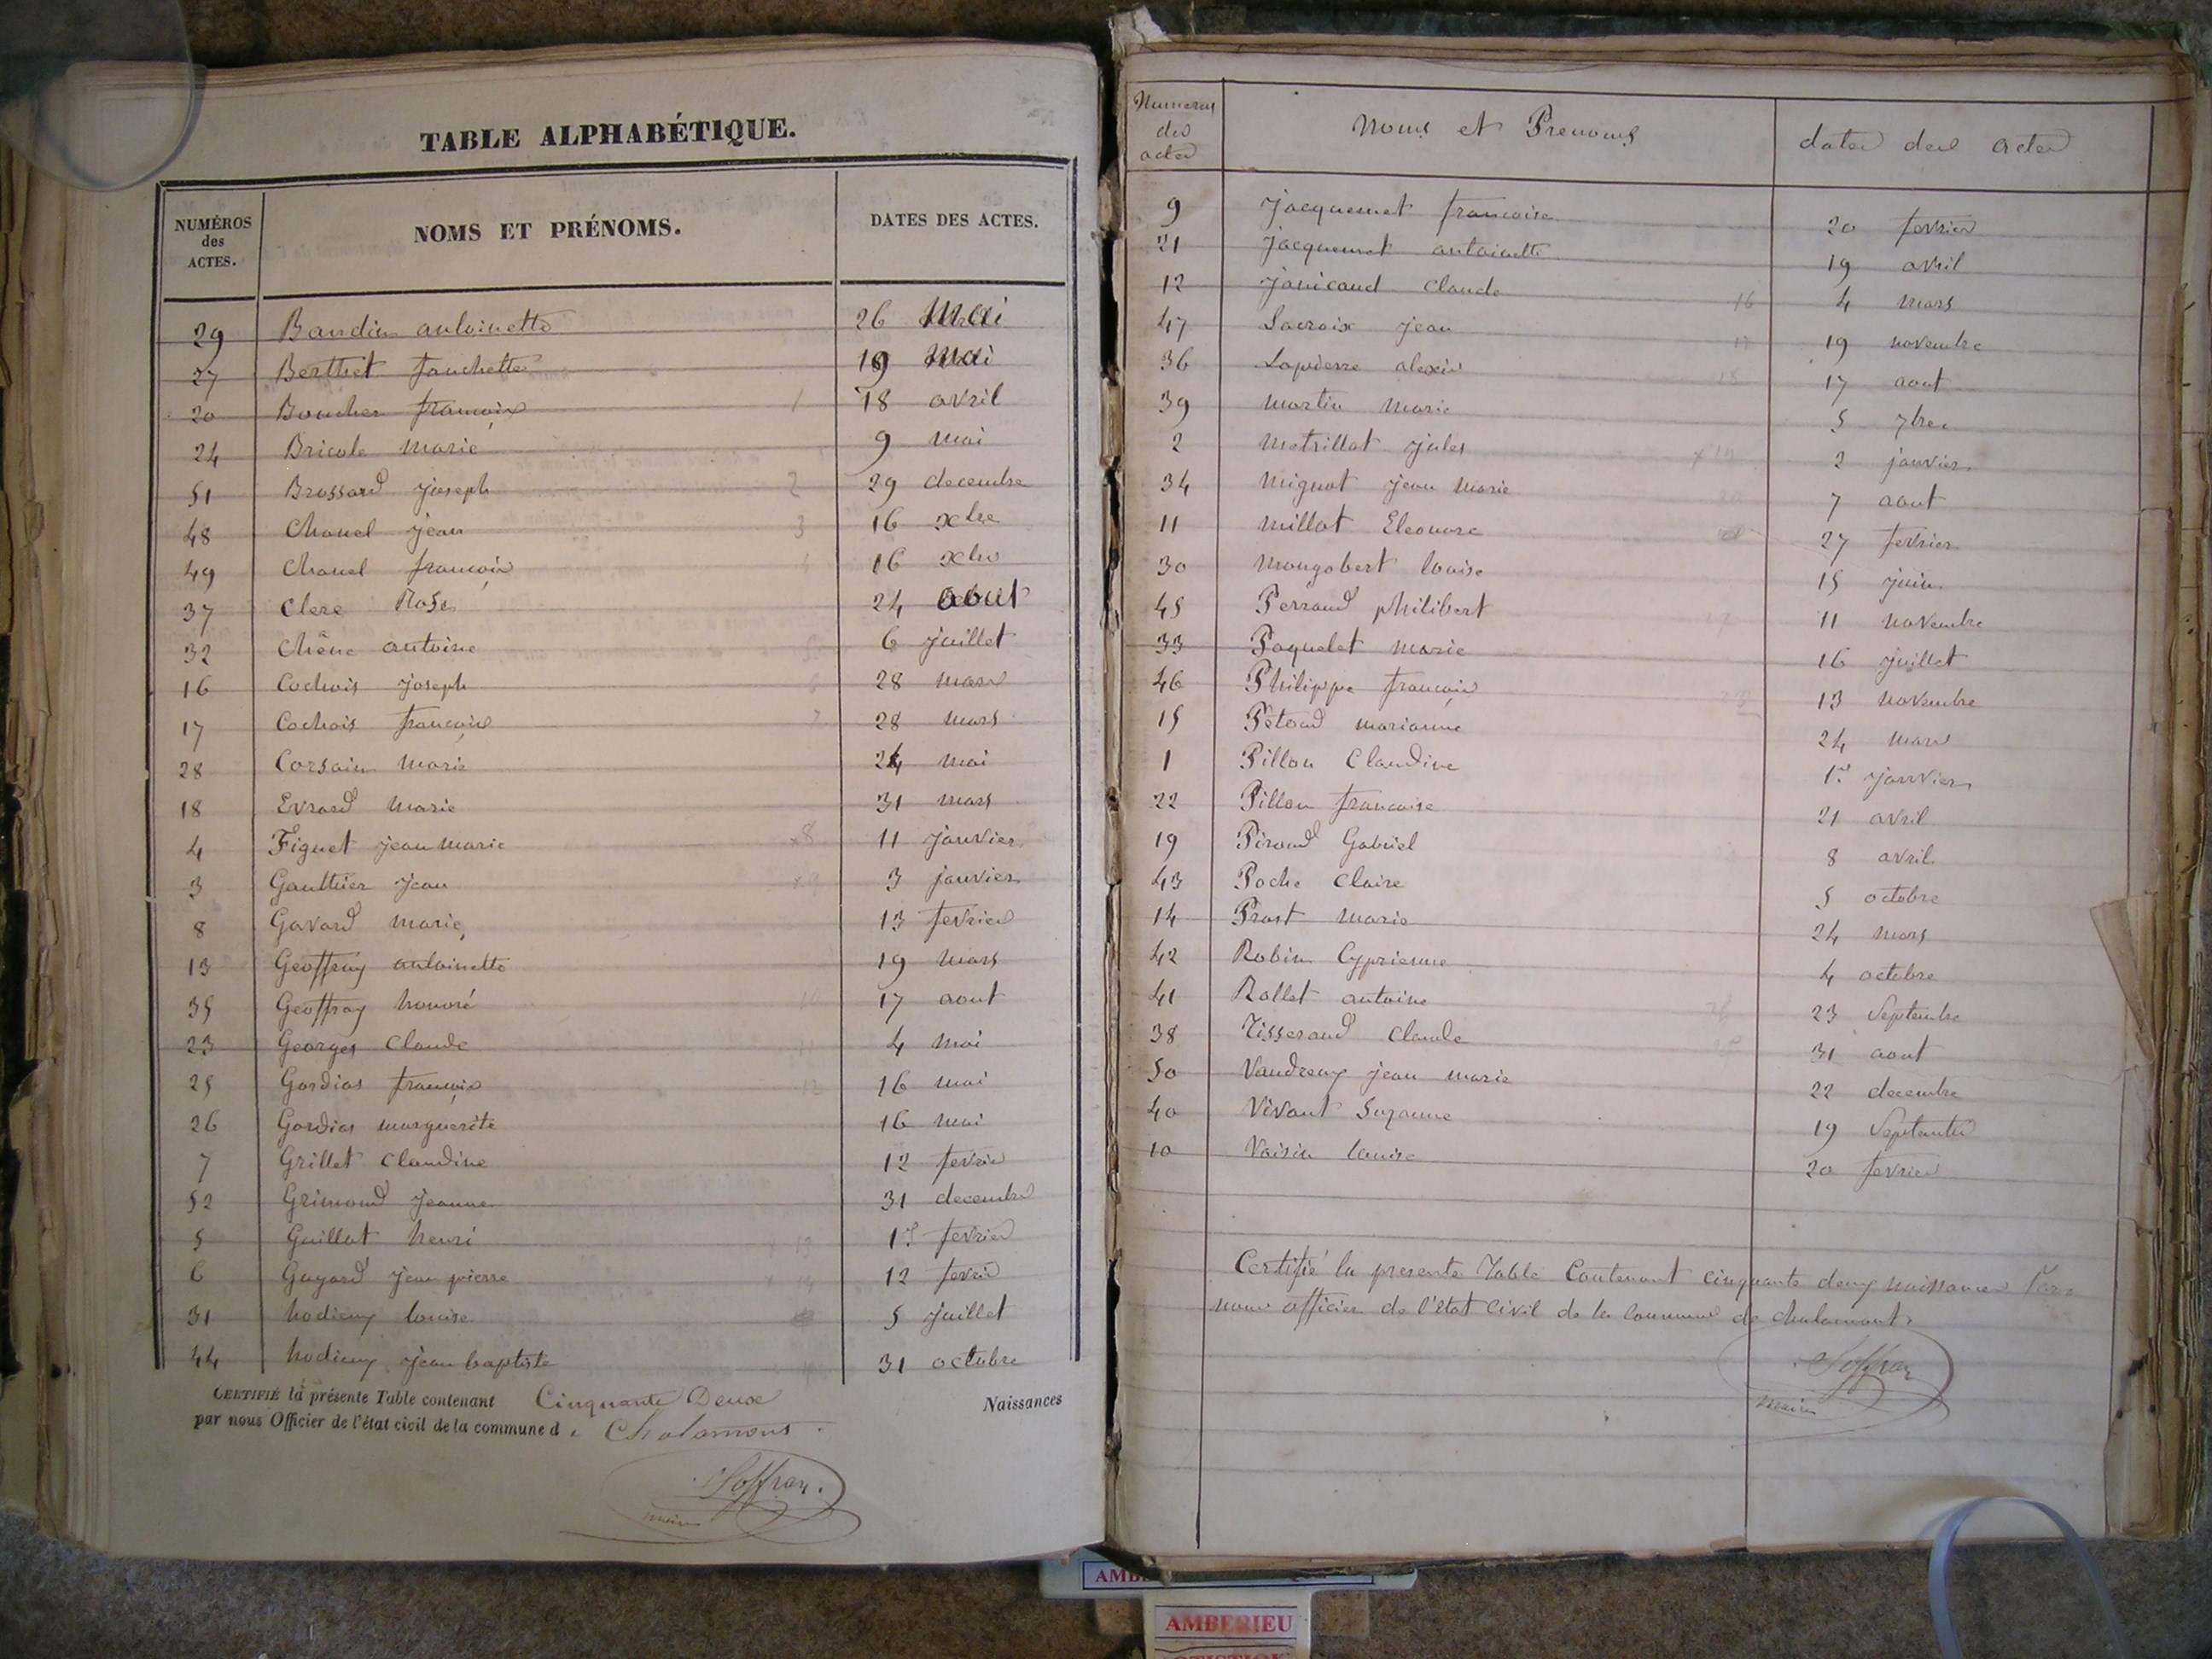 TABLE ALPHABÉTIQUE.
NUMÉROS des ACTES. NOMS ET PRÉNOMS. DATES DES ACTES.
29 Baudin antoinette 26 Mai
27 Berthet fanchette 19 Mai
20 Boucher françois 1 18 avril
24 Bricole marie 9 mai
51 Brossard joseph 2 29 decembre
48 Chanel jean 3 16 xbre
49 Chanel françois 16 xbre
37 Clere Rose 24 aout
32 Chêne antoine 6 juillet
16 Cochois joseph 28 mars
17 Cochois françois 7 28 mars
28 Corsain marie 24 mai
18 Evrard marie 31 mars
4 Figuet jean marie x8 11 janvier
3 Gauthier jean x9 3 janvier
8 Gavard marie 13 fevrier
13 Geoffray antoinette 19 mars
35 Geoffray honoré 10 17 aout
23 Georges Claude 11 4 mai
25 Gordias françois 12 16 mai
26 Gordias marguerite 16 mai
7 Grillet Claudine 12 fevrier
52 Grimond jeanne 31 decembre
5 Guillot henri 13 1er fevrier
6 Guyard jean pierre 14 12 fevrier
31 hodieuy louise 5 juillet
44 hodieuy jean baptiste 31 octobre
CERTIFIÉ la présente Table contenant Cinquante Deux Naissances
par nous Officier de l'état civil de la commune d e Chalamont.
maire
Numeros des actes Noms et Prenoms dates des actes
9 Jacquemet francoise 20 fevrier
21 Jacquemet antoinette 19 avril
12 Janicaud Claude 16 4 mars
47 Lacroix jean 19 novembre
36 Lapierre alexis 17 aout
39 martin marie 5 7bre
2 metrillot jules 2 janvier
34 mignot jean marie 7 aout
11 millot Eleonore 27 fevrier
30 mongobert louise 15 juin
45 Perraud philibert 11 novembre
33 Paquelet marie 16 juillet
46 Philippe françois 13 novembre
15 Pétoud marianne 24 mars
1 Pillon Claudine 1er janvier
22 Pillon francoise 21 avril
19 Piroud Gabriel 8 avril
43 Poche Claire 5 octobre
14 Prost marie 24 mars
42 Robin Cyprienne 4 octobre
41 Rollet antoine 23 Septembre
38 Tisserand Claude 31 aout
50 Vaudreuy jean marie 22 decembre
40 Vivant Suzanne 19 Septembre
10 Voisin louise 20 fevrier
Certifié la presente Table Contenant cinquante deux naissances Par
nous officier de l'état Civil de la Commune de chalamont.
maire
AMBERIEU